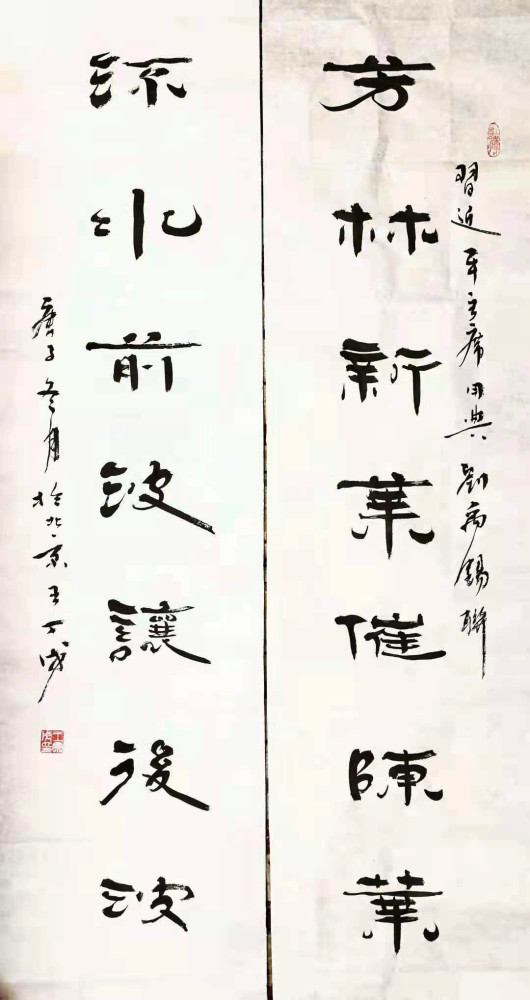 習近平主席用典劉禹錫聯
芳林新葉催陳葉
流水前波讓後波
庚子冬月於北京王